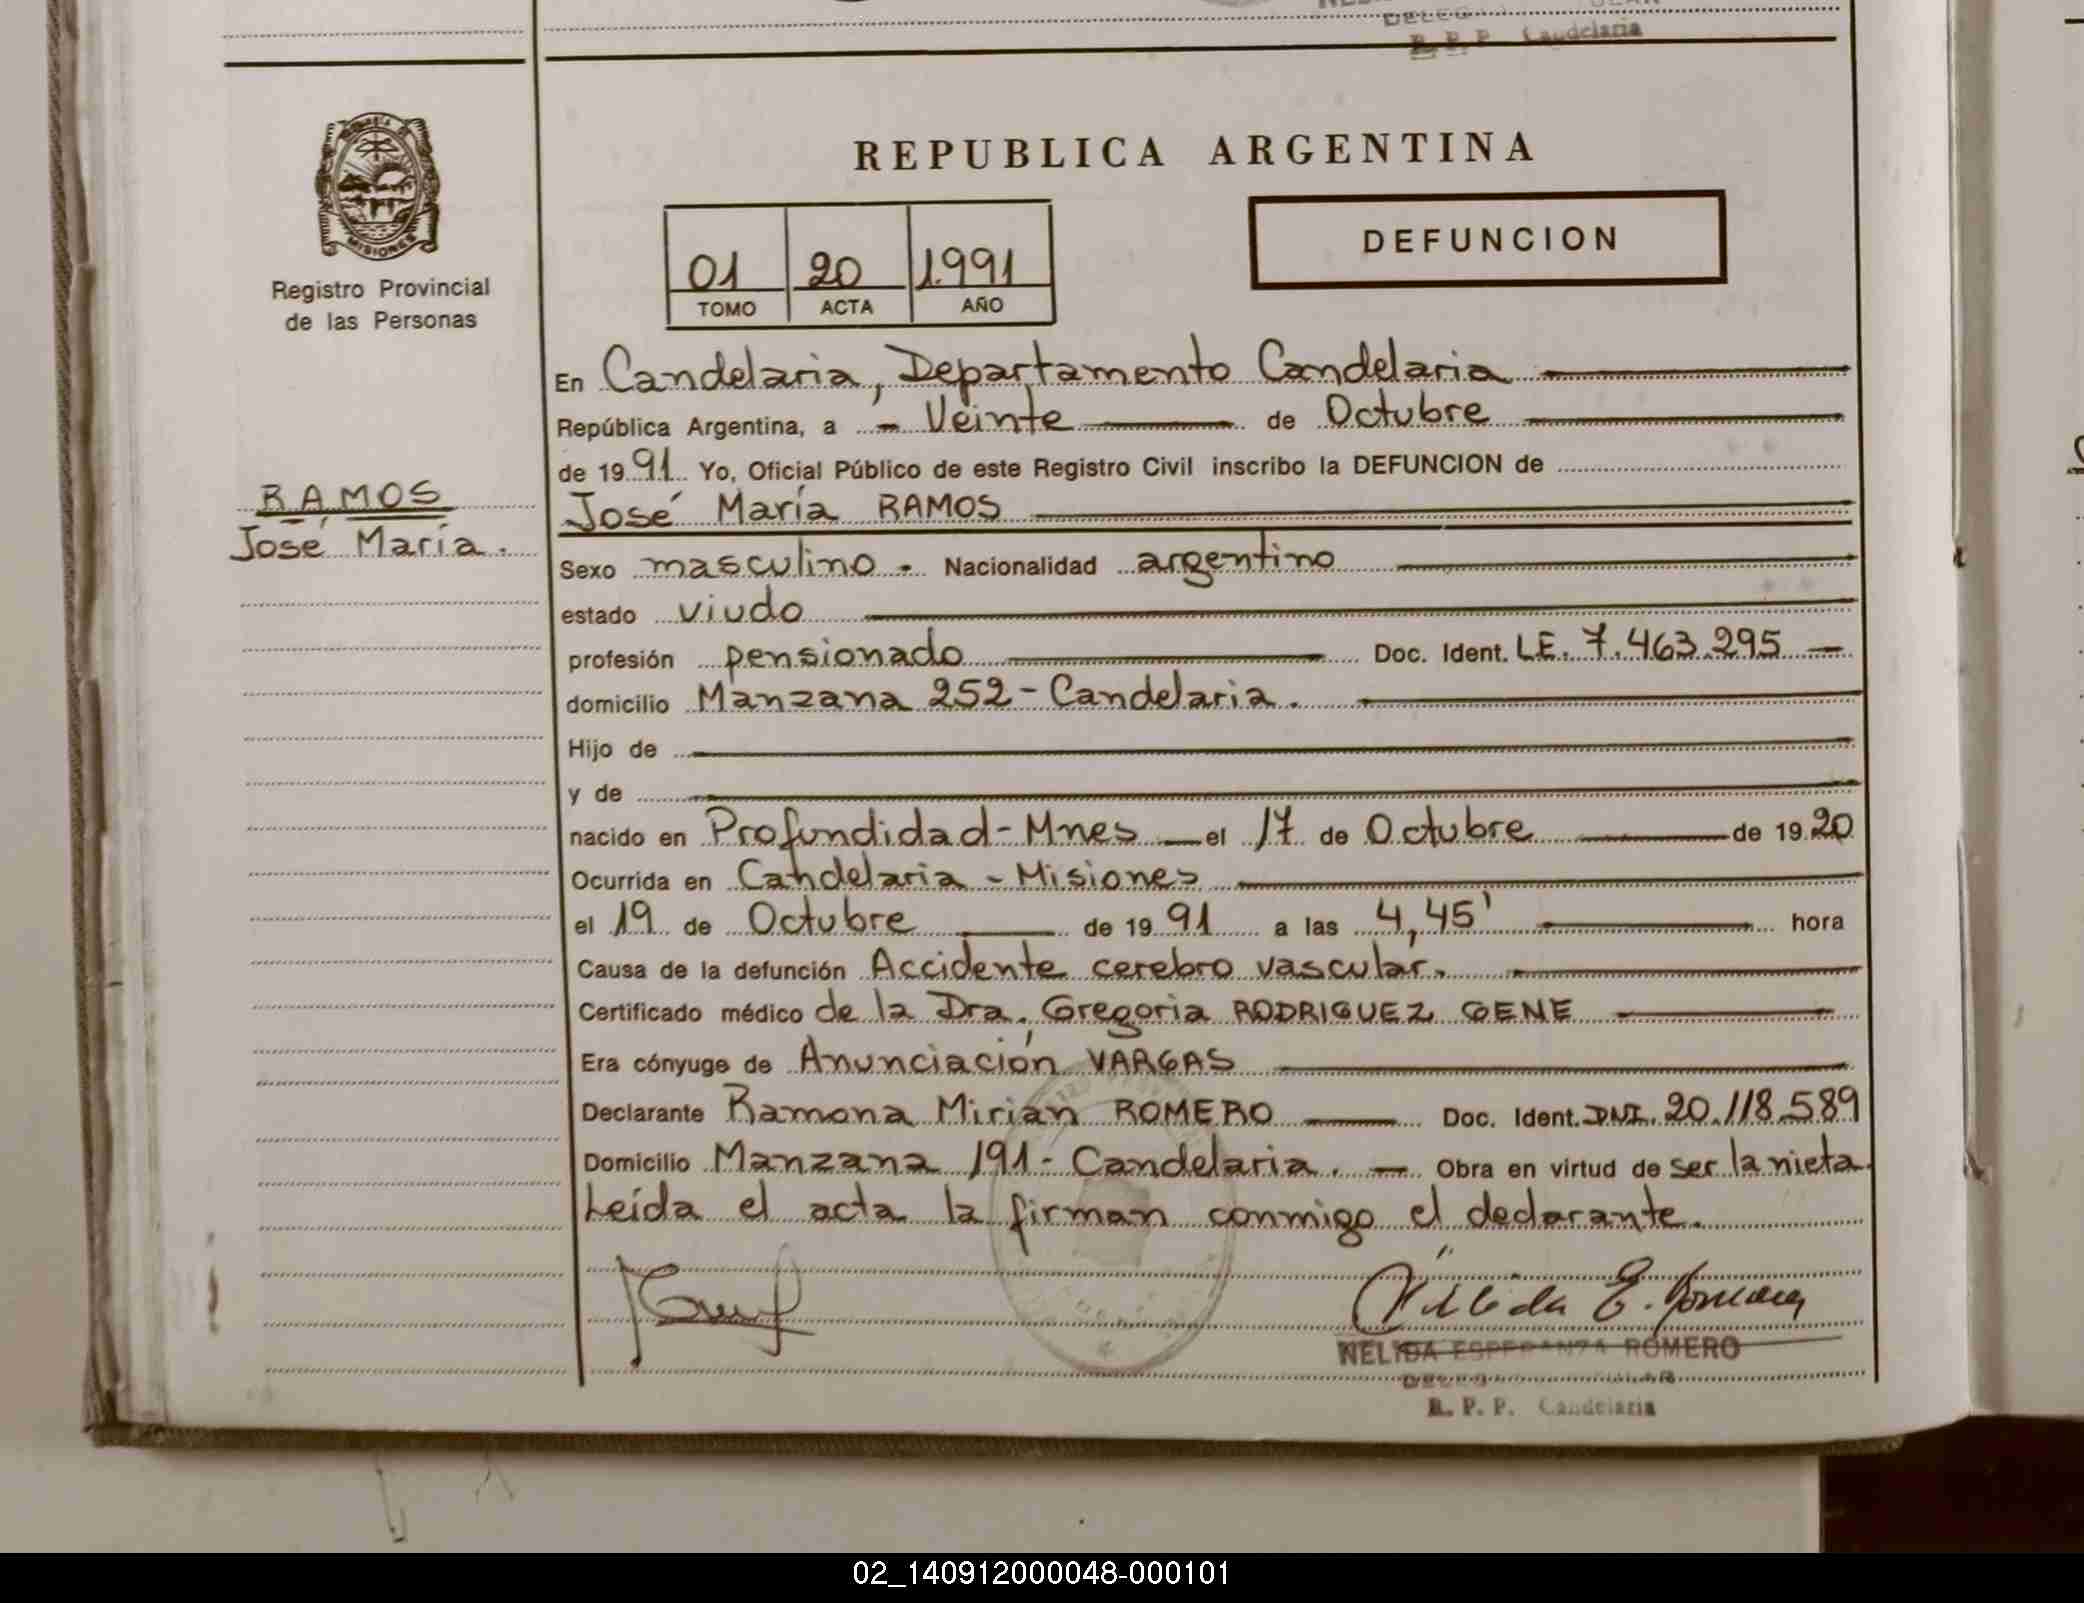 R. P. P. Candelaria
REPUBLICA ARGENTINA
MISIONES
Registro Provincial
de las Personas
01 20 1.991
TOMO ACTA AÑO
DEFUNCION
En Candelaria, Departamento Candelaria
República Argentina, a - Veinte de Octubre
de 19 91 Yo, Oficial Público de este Registro Civil inscribo la DEFUNCION de
RAMOS
José María.
José María RAMOS
Sexo masculino - Nacionalidad argentino
estado viudo
profesión pensionado Doc. Ident. LE. 7.463.295
domicilio Manzana 252 - Candelaria.
Hijo de
y de
nacido en Profundidad - Mnes el 17 de Octubre de 19 20
Ocurrida en Candelaria - Misiones
el 19 de Octubre de 19 91 a las 4,45' hora
Causa de la defunción Accidente cerebro vascular.
Certificado médico de la Dra. Gregoria RODRIGUEZ GENE
Era cónyuge de Anunciación VARGAS
Declarante Ramona Mirian ROMERO Doc. Ident. DNI. 20.118.589
Domicilio Manzana 191 - Candelaria. Obra en virtud de ser la nieta.
Leída el acta la firman conmigo el declarante.
NELIDA ESPERANZA ROMERO
R. P. P. Candelaria
02_140912000048-000101